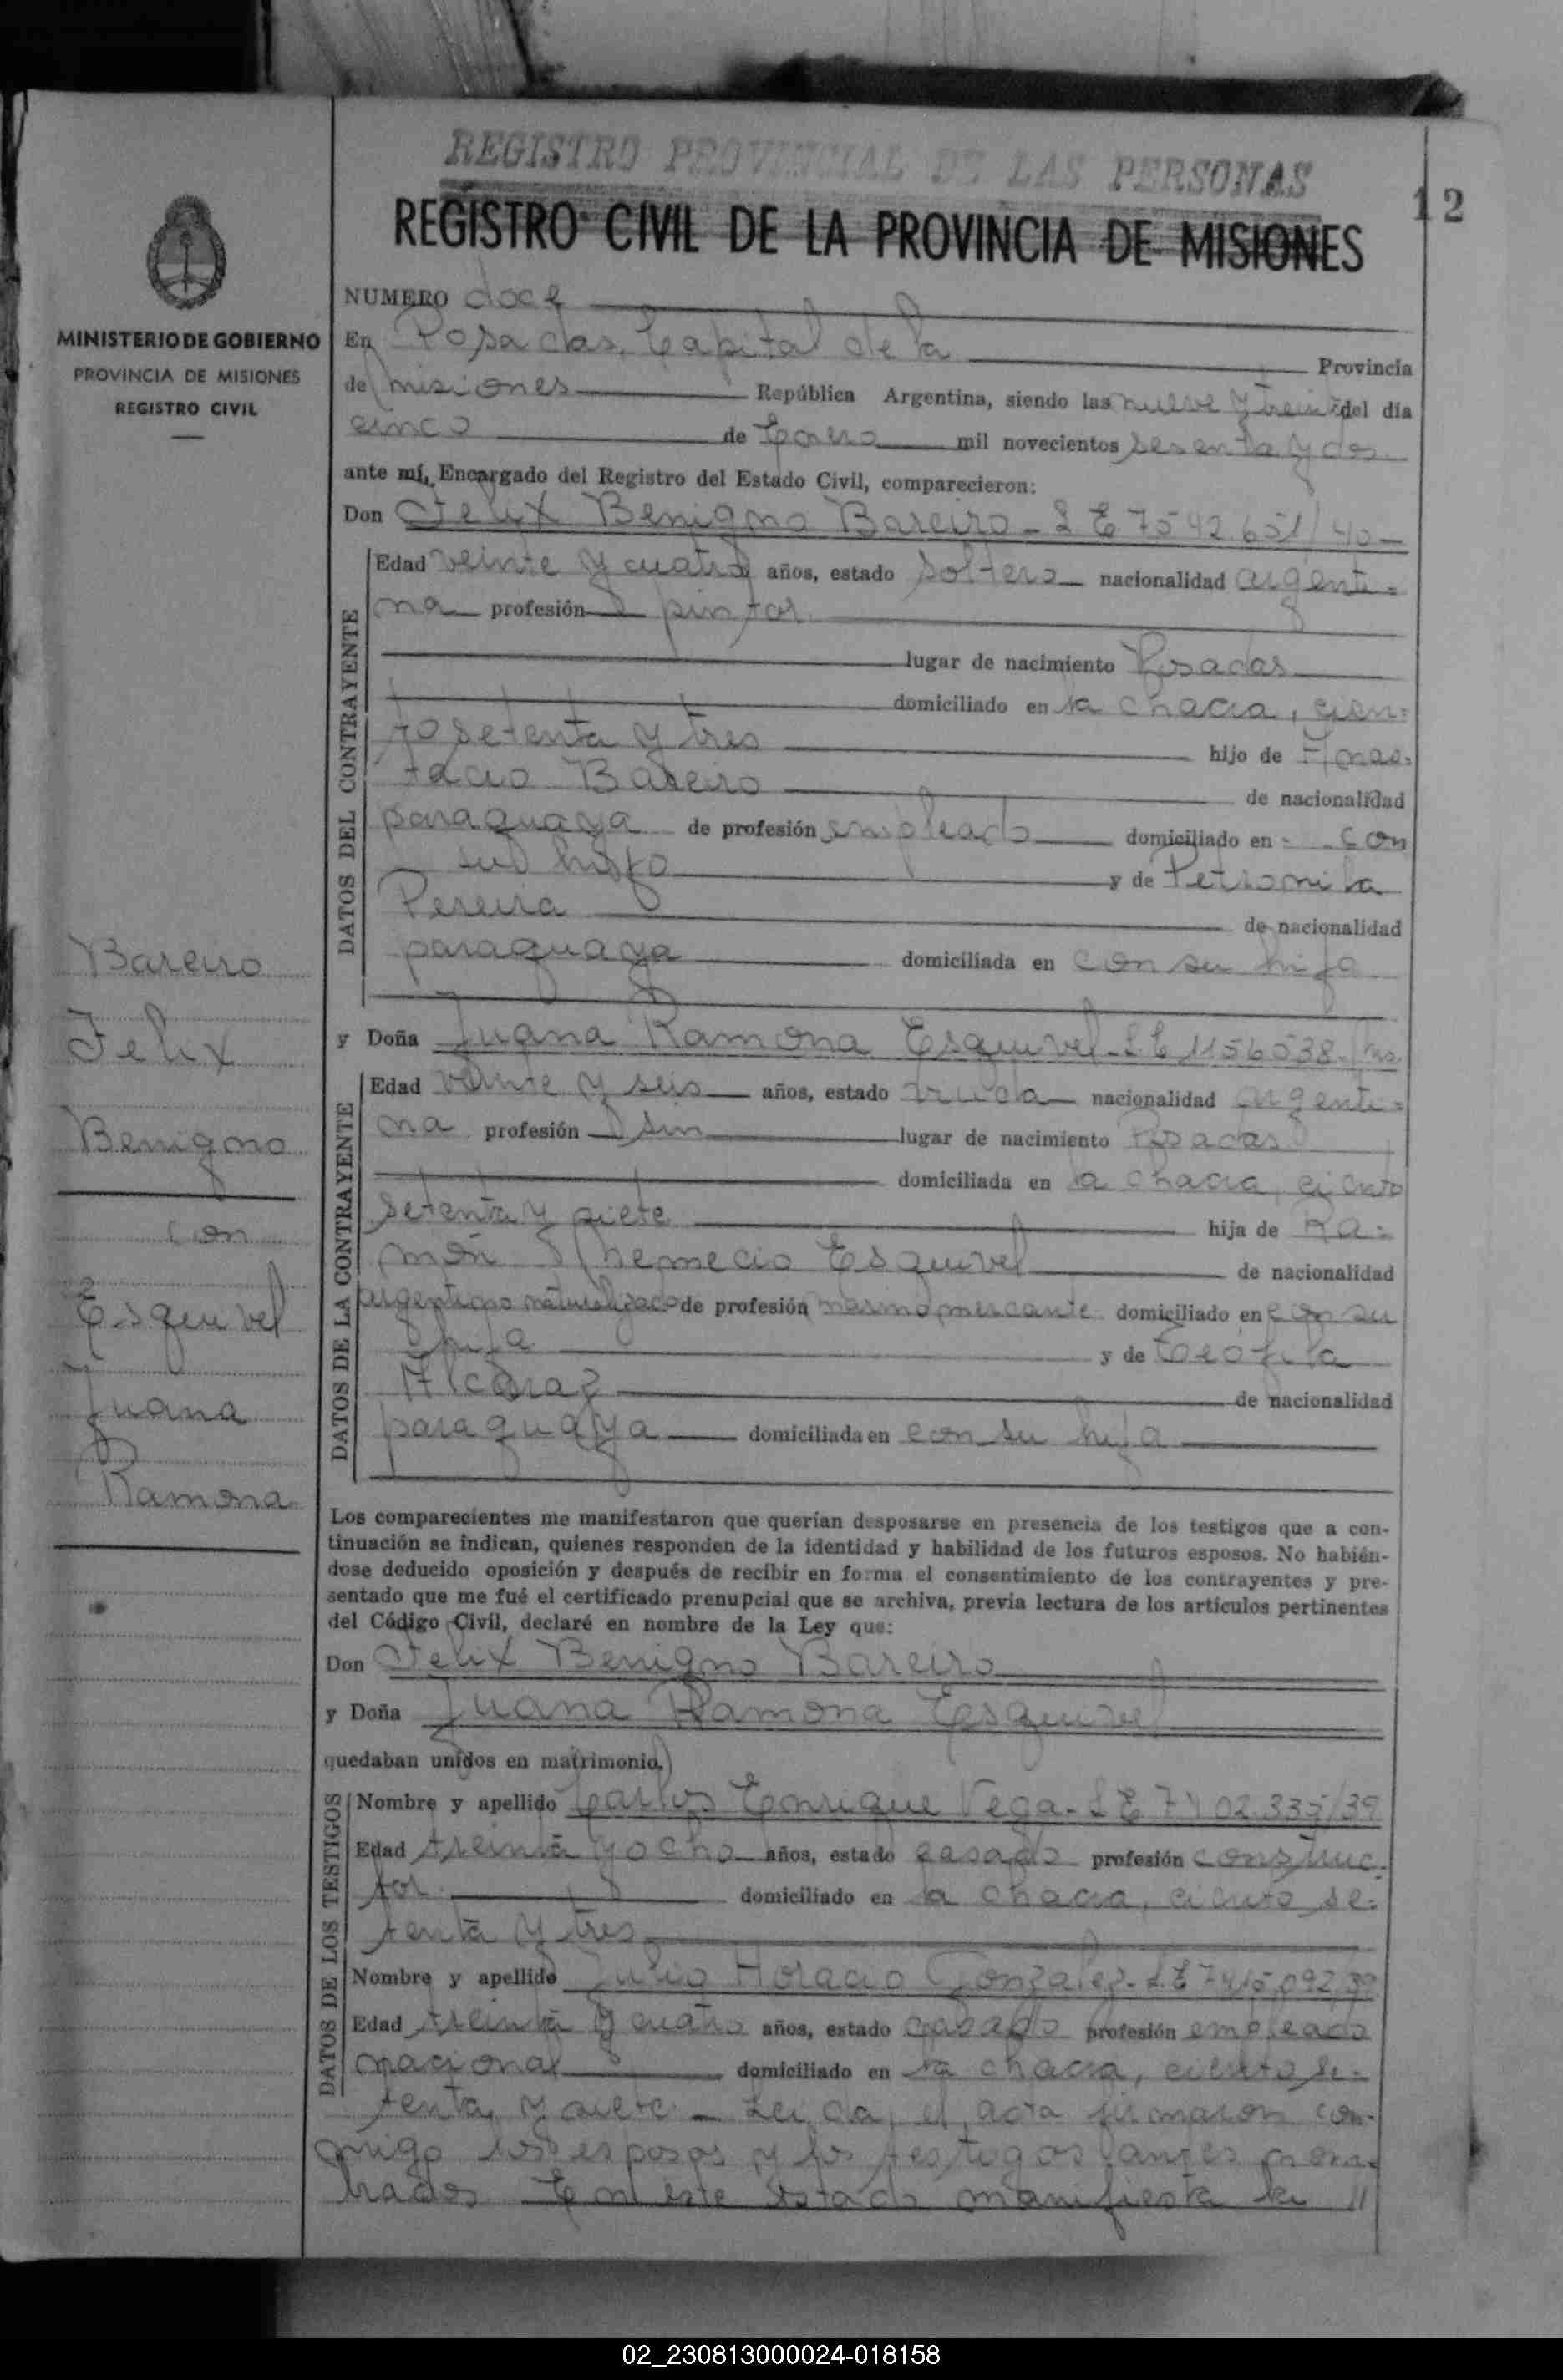 REGISTRO PROVINCIAL DE LAS PERSONAS
12
REGISTRO CIVIL DE LA PROVINCIA DE MISIONES
MINISTERIO DE GOBIERNO
PROVINCIA DE MISIONES
REGISTRO CIVIL
NUMERO doce
En Posadas, Capital de la Provincia
de misiones República Argentina, siendo las nueve y treinta del día
cinco de Enero mil novecientos sesenta y dos
ante mí, Encargado del Registro del Estado Civil, comparecieron:
Don Felix Benigno Bareiro - L E 7542.651/40 -
DATOS DEL CONTRAYENTE
Edad veinte y cuatro años, estado soltero nacionalidad argenti=
na profesión pintor
lugar de nacimiento Posadas
domiciliado en la chacra, cien=
to setenta y tres hijo de Anas=
tacio Bareiro de nacionalidad
paraguaya de profesión empleado domiciliado en con
su hijo y de Petronila
Pereira de nacionalidad
paraguaya domiciliada en con su hijo
y Doña Juana Ramona Esquivel - L C 1156538 -
DATOS DE LA CONTRAYENTE
Edad veinte y seis años, estado viuda nacionalidad argenti=
na profesión sin lugar de nacimiento Posadas
domiciliada en la chacra, ciento
setenta y siete hija de Ra=
món Esquivel de nacionalidad
argentino naturalizado de profesión marino mercante domiciliado en con su
hija y de Teófila
Alcaraz de nacionalidad
paraguaya domiciliada en con su hija
Bareiro
Felix
Benigno
con
Esquivel
Juana
Ramona
Los comparecientes me manifestaron que querían desposarse en presencia de los testigos que a con-
tinuación se indican, quienes responden de la identidad y habilidad de los futuros esposos. No habién-
dose deducido oposición y después de recibir en forma el consentimiento de los contrayentes y pre-
sentado que me fué el certificado prenupcial que se archiva, previa lectura de los artículos pertinentes
del Código Civil, declaré en nombre de la Ley que:
Don Felix Benigno Bareiro
y Doña Juana Ramona Esquivel
quedaban unidos en matrimonio.
DATOS DE LOS TESTIGOS
Nombre y apellido Carlos Enrique Vega - L E 7402.335/39
Edad treinta y ocho años, estado casado profesión construc=
tor domiciliado en la chacra, ciento se=
tenta y tres
Nombre y apellido Julio Horacio Gonzalez - L E 7415.092/39
Edad treinta y cuatro años, estado casado profesión empleado
nacional domiciliado en la chacra, ciento se=
tenta y siete - Leida el acta firmaron con-
migo los esposos y los testigos antes nom-
brados En este estado manifiesta la //
02_230813000024-018158